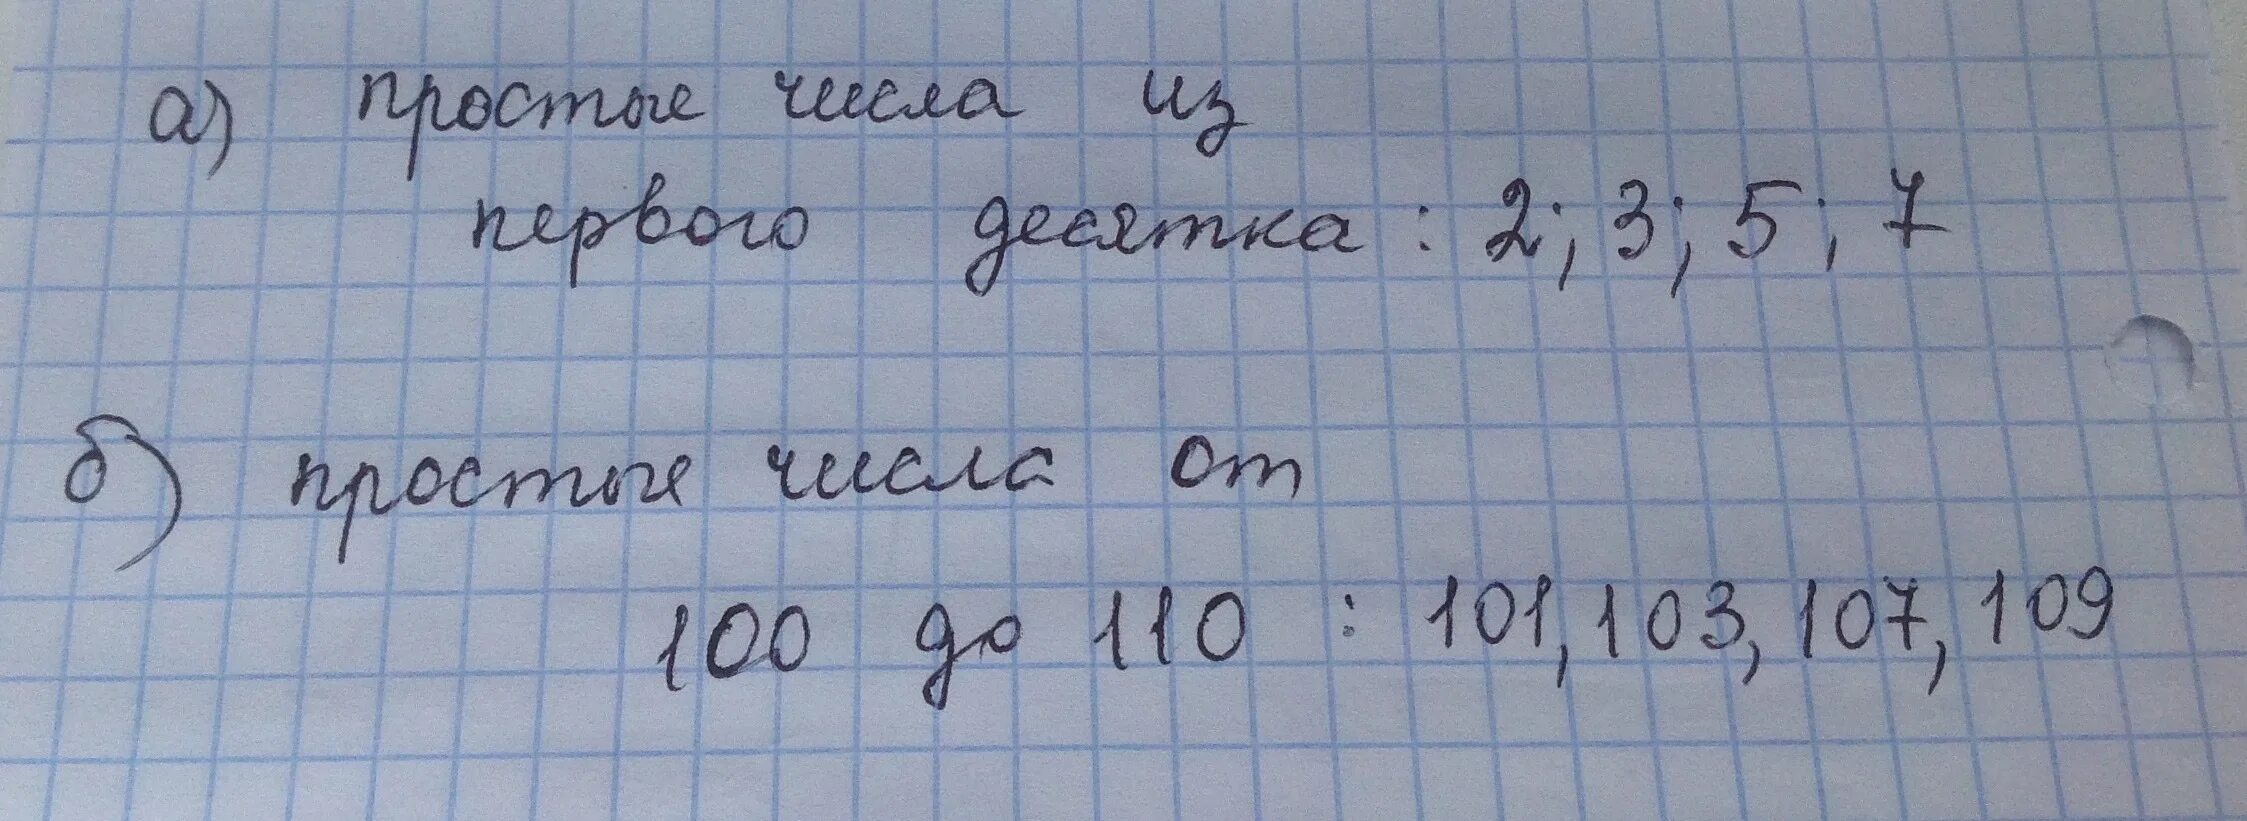 а) простые числа из
первого десятка : 2; 3; 5; 7
б) простые числа от
100 до 110 : 101, 103, 107, 109